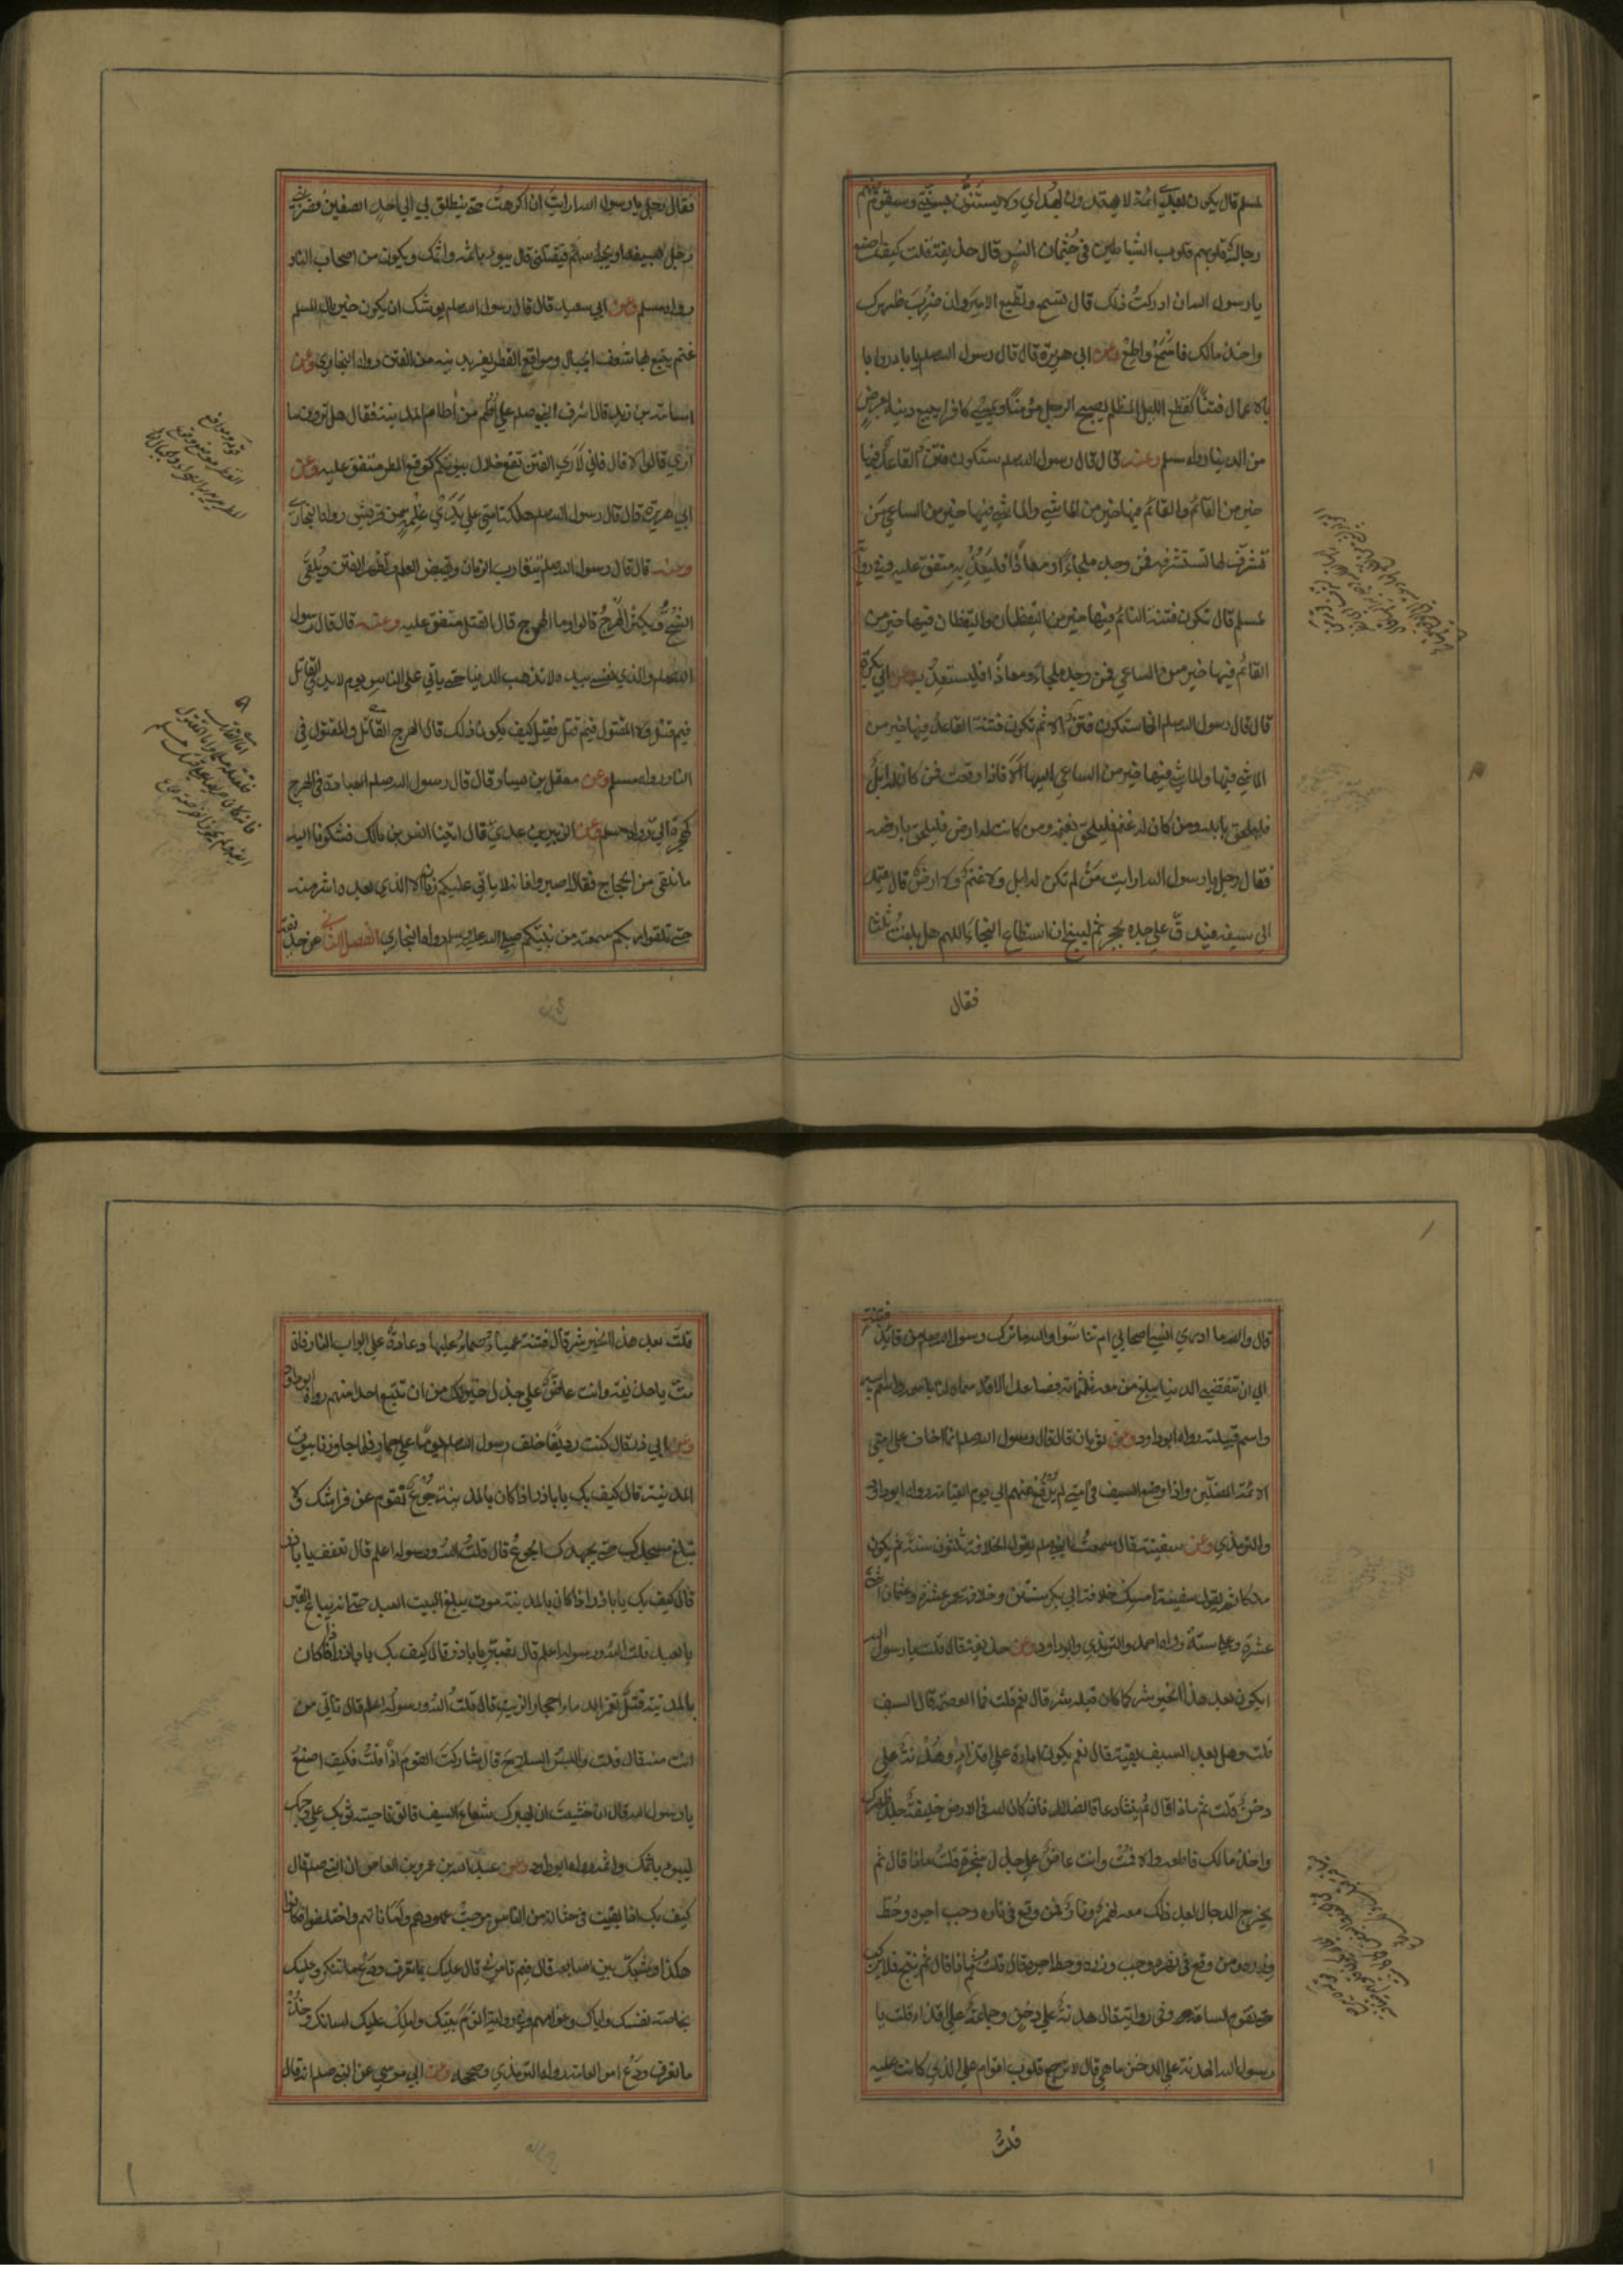 لمسلم قال يكون بعدي ائمة لا يهتدون بهداي ولا يستنون بسنتي وسيقوم فيهم
رجال قلوبهم قلوب الشياطين في جثمان انس قال حذيفة قلت كيف اصنع
يا رسول الله ان ادركت ذلك قال تسمع وتطيع الامير وان ضرب ظهرك
واخذ مالك فاسمع واطع وعن ابي هريرة قال قال رسول الله صلعم بادروا
بالاعمال فتنا كقطع الليل المظلم يصبح الرجل مؤمنا ويمسي كافرا يبيع دينه بعرض
من الدنيا رواه مسلم وعنه قال قال رسول الله صلعم ستكون فتن القاعد فيها
خير من القائم والقائم فيها خير من الماشي والماشي فيها خير من الساعي من
تشرف لها تستشرفه فمن وجد ملجاء او معاذا فليعذ به متفق عليه وفي رواية
لمسلم قال تكون فتنة النائم فيها خير من اليقظان واليقظان فيها خير من
القائم والقائم فيها خير من الساعي فمن وجد ملجاء او معاذا فليستعذ به وعن ابي بكرة
قال قال رسول الله صلعم انها ستكون فتن الا ثم تكون فتنة القاعد فيها خير من
الماشي فيها والماشي فيها خير من الساعي اليها الا فاذا وقعت فمن كان له ابل
فليلحق بابله ومن كان له غنم فليلحق بغنمه ومن كانت له ارض فليلحق بارضه
فقال رجل يا رسول الله ارايت من لم تكن له ابل ولا غنم ولا ارض قال يعمد
الى سيفه فيدق على حده بحجر ثم لينج ان استطاع النجاء اللهم هل بلغت ثلثا
فقال
فقال رجل يا رسول الله ارايت ان اكرهت حتى ينطلق بي الى احد الصفين فضربني
رجل بسيفه او يجيء سهم فيقتلني قال يبوء باثمه واثمك ويكون من اصحاب النار
رواه مسلم وعن ابي سعيد قال قال رسول الله صلعم يوشك ان يكون خير مال المسلم
غنم يتبع بها شعف الجبال ومواقع القطر يفر بدينه من الفتن رواه البخاري وعن
اسامة بن زيد قال اشرف النبي صلعم على اطم من اطام المدينة فقال هل ترون ما
ارى قالوا لا قال فاني لارى الفتن تقع خلال بيوتكم كوقع المطر متفق عليه وعن
ابي هريرة قال قال رسول الله صلعم هلكة امتي على يدي غلمة من قريش رواه البخاري
وعنه قال قال رسول الله صلعم يتقارب الزمان ويقبض العلم وتظهر الفتن ويلقى
الشح ويكثر الهرج قالوا وما الهرج قال القتل متفق عليه وعنه قال قال رسول
الله صلعم والذي نفسي بيده لا تذهب الدنيا حتى ياتي على الناس يوم لا يدري القاتل
فيم قتل ولا المقتول فيم قتل فقيل كيف يكون ذلك قال الهرج القاتل والمقتول في
النار رواه مسلم وعن معقل بن يسار قال قال رسول الله صلعم العبادة في الهرج
كهجرة الي رواه مسلم وعن الزبير بن عدي قال اتينا انس بن مالك فشكونا اليه
ما نلقى من الحجاج فقال اصبروا فانه لا ياتي عليكم زمان الا الذي بعده اشر منه
حتى تلقوا ربكم سمعته من نبيكم صلى الله عليه وسلم رواه البخاري الفصل الثاني عن حذيفة
قال والله ما ادري انسي اصحابي ام تناسوا والله ما ترك رسول الله صلعم من قائد فتنة
الى ان تنقضي الدنيا يبلغ من معه ثلثمائة فصاعدا الا قد سماه لنا باسمه واسم ابيه
واسم قبيلته رواه ابوداود وعن ثوبان قال قال رسول الله صلعم انما اخاف على امتي
الائمة المضلين واذا وضع السيف في امتي لم يرفع عنهم الى يوم القيامة رواه ابوداود
والترمذي وعن سفينة قال سمعت النبي صلعم يقول الخلافة ثلثون سنة ثم يكون
ملكا ثم يقول سفينة امسك خلافة ابي بكر سنتين وخلافة عمر عشرة وعثمان اثنتي
عشرة وعلي ستة رواه احمد والترمذي وابوداود وعن حذيفة قال قلت يا رسول الله
ايكون بعد هذا الخير شر كما كان قبله شر قال نعم قلت فما العصمة قال السيف
قلت وهل بعد السيف بقية قال نعم يكون امارة على اقذاء وهدنة على
دخن قلت ثم ماذا قال ثم ينشاء دعاة الضلال فان كان لله في الارض خليفة جلد ظهرك
واخذ مالك فاطعه والا فمت وانت عاض على جذل شجرة قلت ماذا قال ثم
يخرج الدجال بعد ذلك معه نهر ونار فمن وقع في ناره وجب اجره وحط
وزره ومن وقع في نهره وجب وزره وحط اجره قال قلت ثم ماذا قال ثم ينتج المهر فلا يركب
حتى تقوم الساعة وفي رواية قال هدنة على دخن وجماعة على اقذاء قلت يا
رسول الله الهدنة على الدخن ما هي قال لا ترجع قلوب اقوام على الذي كانت عليه
قلت
قلت بعد هذا الخير شر قال فتنة عمياء صماء عليها دعاة على ابواب النار فان
مت يا حذيفة وانت عاض على جذل خير لك من ان تتبع احدا منهم رواه ابوداود
وعن ابي ذر قال كنت رديفا خلف رسول الله صلعم يوما على حمار فلما جاوزنا بيوت
المدينة قال كيف بك يا باذر اذا كان بالمدينة جوع تقوم عن فراشك لا
تبلغ مسجدك حتى يجهدك الجوع قال قلت الله ورسوله اعلم قال تعفف يا باذر
قال كيف بك يا باذر اذا كان بالمدينة موت يبلغ البيت العبد حتى انه يباع القبر
بالعبد قلت الله ورسوله اعلم قال تصبر يا باذر قال كيف بك يا باذر اذا كان
بالمدينة قتل تغمر الدماء احجار الزيت قال قلت الله ورسوله اعلم قال تاتي من
انت منه قال قلت والبس السلاح قال شاركت القوم اذا قلت فكيف اصنع
يا رسول الله قال ان خشيت ان يبهرك شعاع السيف فالق ناحية ثوبك على وجهك
ليبوء باثمك واثمه رواه ابوداود وعن عبد الله بن عمرو بن العاص ان النبي صلعم قال
كيف بك اذا بقيت في حثالة من الناس مرجت عهودهم واماناتهم واختلفوا فكانوا
هكذا وشبك بين اصابعه قال فبم تامرني قال عليك بما تعرف ودع ما تنكر وعليك
بخاصة نفسك واياك وعوامهم وفي رواية الزم بيتك واملك عليك لسانك وخذ
ما تعرف ودع امر العامة رواه الترمذي وصححه وعن ابي موسى عن النبي صلعم انه قال